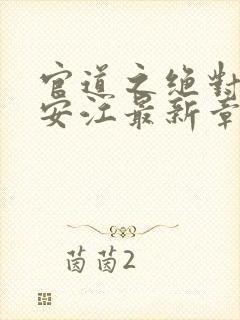 官道之绝对
安江最新章
茵茵2